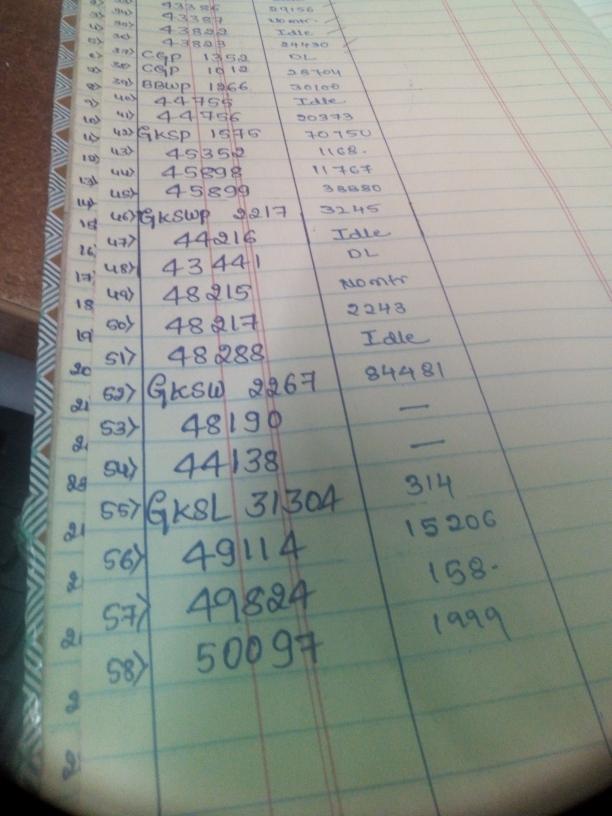 43386 29156
43387 Nomtr.
43822 Idle
43823 24430
CGP 1352 DL
38) CGP 1012 28704
39) BBWP 1266 30100
40) 44755 Idle
41) 44756 20373
42) GKSP 1575 70750
43) 45352 1168.
44) 45898 11767
45) 45899 38880
46) GKSWP 2217 3245
47) 44216 Idle
48) 43441 DL
49) 48215 Nomtr
50) 48217 2243
51) 48288 Idle
52) GKSW 2267 84481
53) 48190 —
54) 44138 —
55) GKSL 31304 314
56) 49114 15206
57) 49824 158.
58) 50097 1999